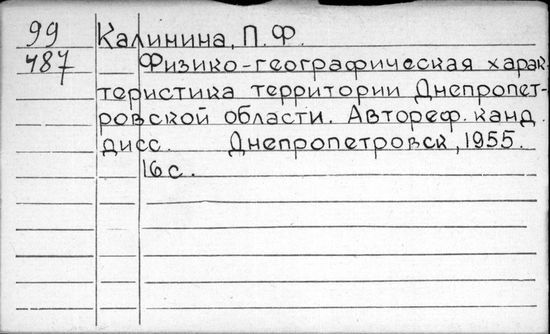 99 Калинина, П.Ф.
487 Физико-географическая харак-
теристика территории Днепропет-
ровской области. Автореф. канд.
дисс. Днепропетровск, 1955.
16с.